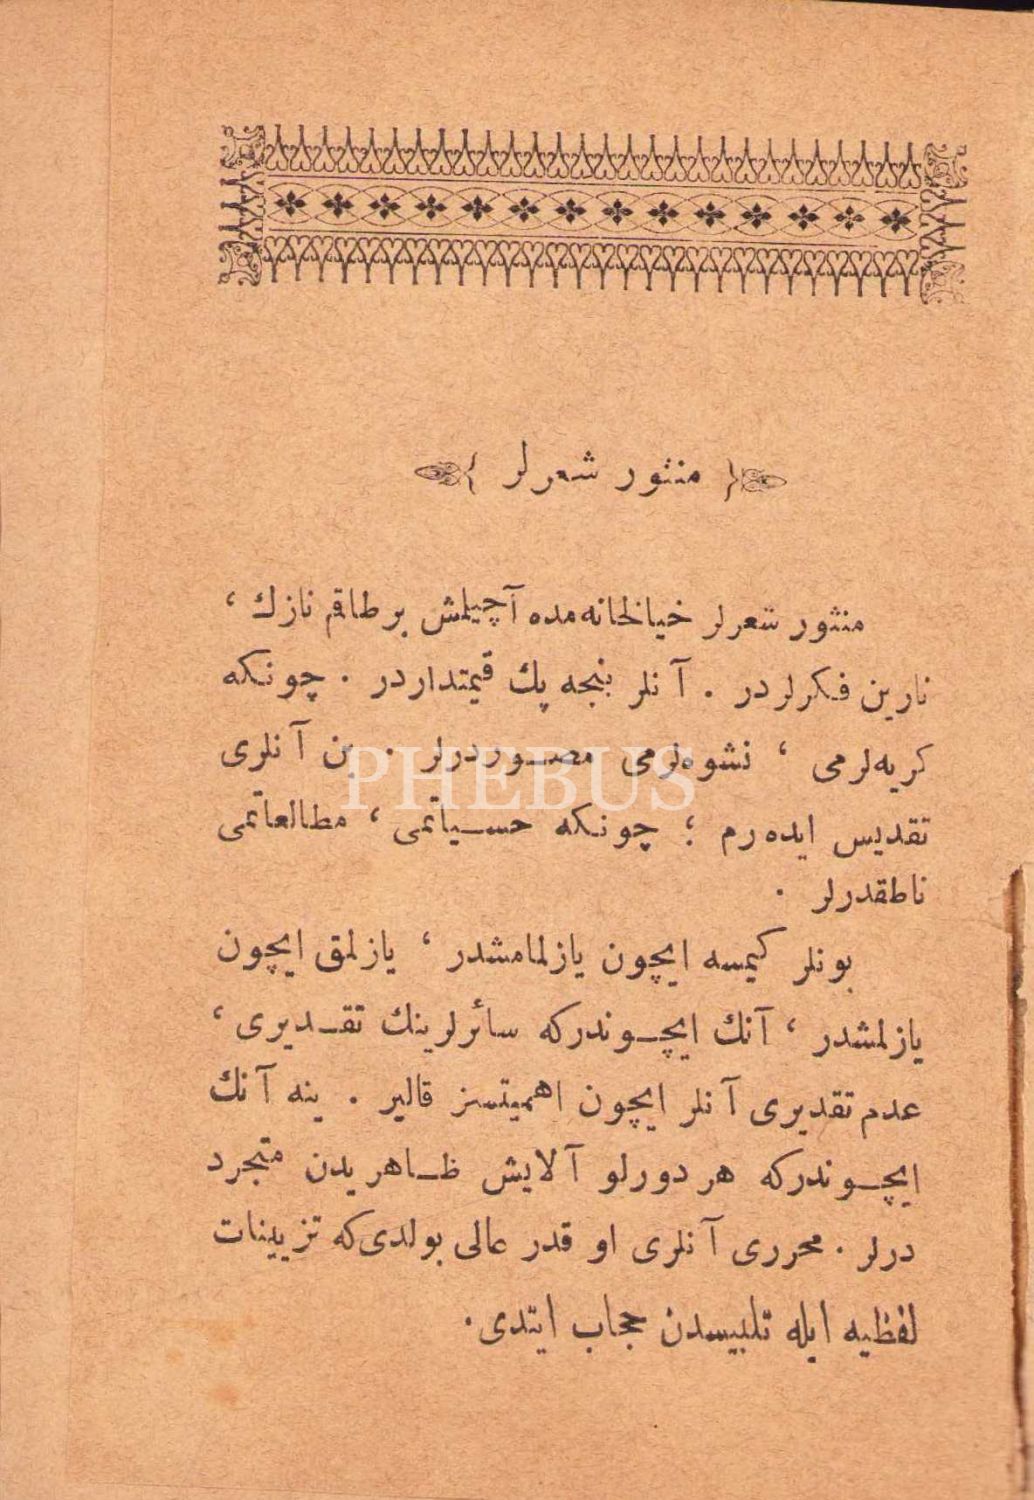 ﴿ منثور شعرلر ﴾
منثور شعرلر خیالخانه‌مده آچیلمش بر طاقم نازك ،
نارین فکرلردر . آنلر بنجه پك قیمتداردر . چونکه
کریه‌لرمی ، نشوه‌لرمی مصوردرلر . بن آنلری
تقدیس ایده‌رم ؛ چونکه حسیاتمی ، مطالعاتمی
ناطقدرلر .
بونلر کیمسه ایچون یازلمامشدر ، یازلمق ایچون
یازلمشدر ، آنك ایچوندرکه سائرلرینك تقدیری ،
عدم تقدیری آنلر ایچون اهمیتسز قالیر . ینه آنك
ایچوندرکه هر دورلو آلایش ظاهریدن متجرد
درلر . محرری آنلری او قدر عالی بولدی‌که تزیینات
لفظیه ایله تلبیسدن حجاب ایتدی .
PHEBUS